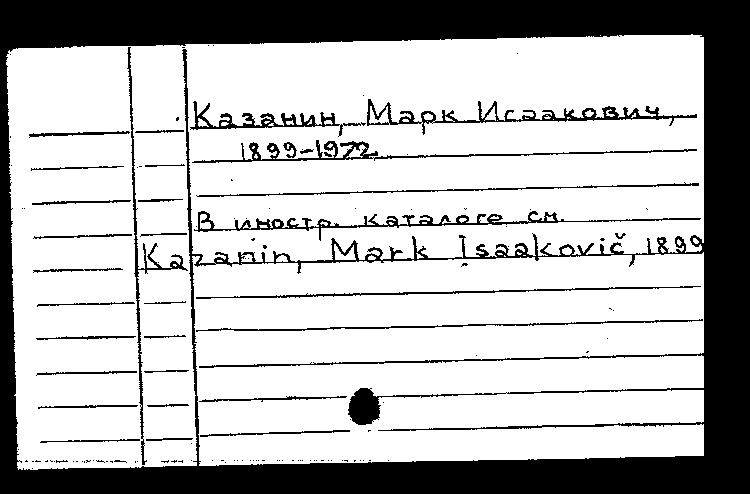 Казанин, Марк Исаакович,
1899-1972
В иностр. каталоге см.
Kazanin, Mark Isaakovič, 1899